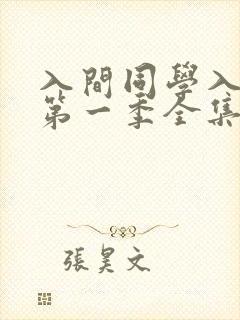 入間同學入
第一季全集
張昊文